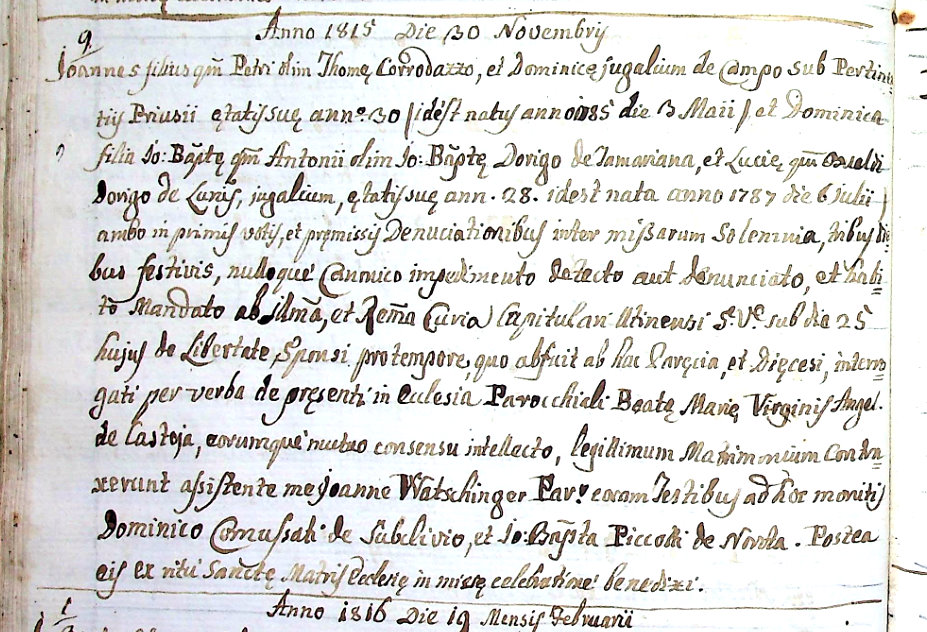 Anno 1815 Die 30 Novembrij
9
Joannes filius qm̃ Petri olim Thomę Corrodazzo, et Dominicę jugalium de Campo sub Pertinen
tijs Priusii ętatis suę ann.º 30 / idest natus anno 1785 die 3 Maii / et Dominica
filia Jo: Bap̃tę qm̃ Antonii olim Jo: Bap̃tę Dorigo de Tamariana, et Lucię, qm̃
Dorigo de Lunis, jugalium, ętatis suę ann. 28. idest nata anno 1787 die 6 Julii /
ambo in primis votis, et pręmissis Denuciationibus inter missarum Solemnia, tribus die
bus festivis, nulloque Canonico impedimento detecto aut denunciato, et habi
to Mandato ab Illm̃a, et Rem̃a Curia Capitulari Utinensi S. V.e sub die 25
hujus de Libertate Sponsi pro tempore, quo abfuit ab hac Paręcia, et Dięcesi, interro
gati per verba de pręsenti in ecclesia Parocchiali Beatę Marię Virginis Angel.
de Castoja, eorumque mutuo consensu intellecto, legittimum Matrimonium Contra
xerunt assistente me Joanne Watschinger Par.º coram Testibus ad hoc monitis
Dominico Comussati de Subclivio, et Jo: Bap̃sta Piccotti de . Postea
eis ex ritu Sanctę Matris Ecclesię in missę celebratione benedixi.
1
Anno 1816 Die 19 Mensis Februarii